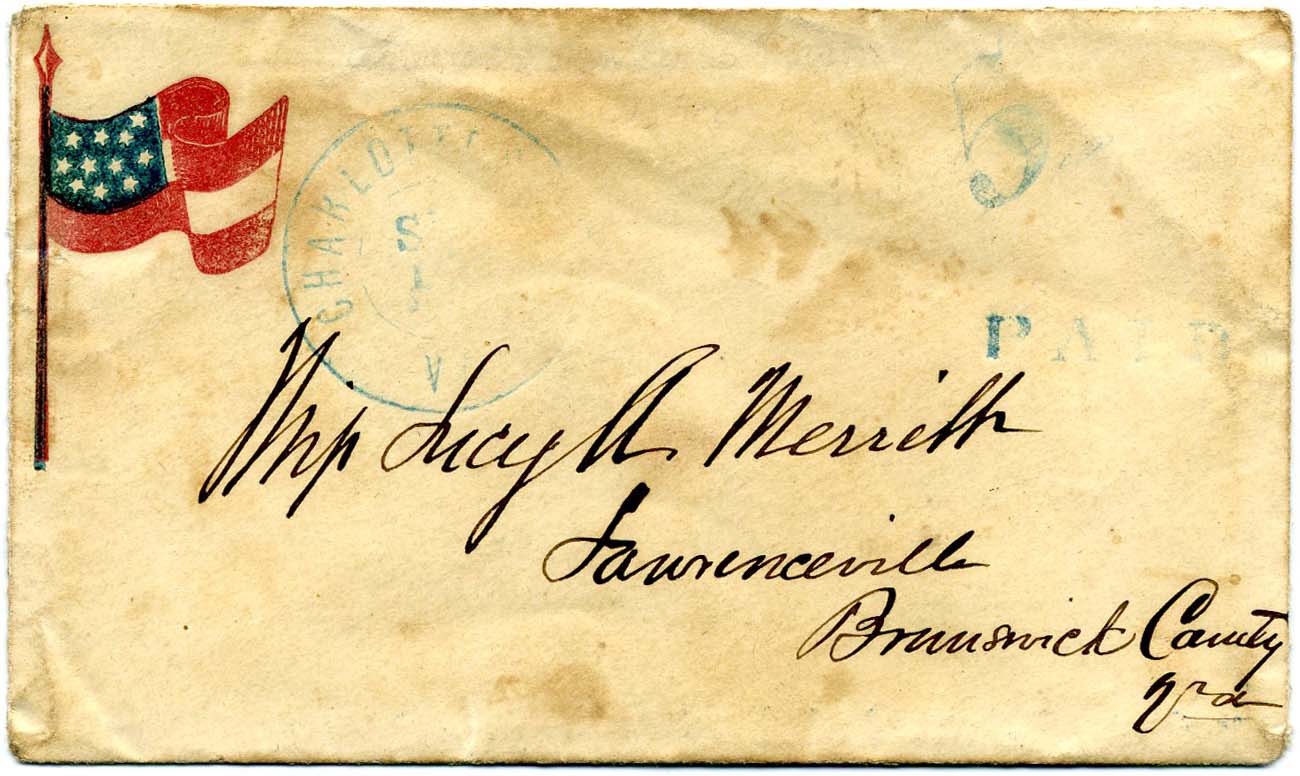 CHARLOTTE
5
PAID
Miss Lucy A Merritt
Lawrenceville
Brunswick County
Va